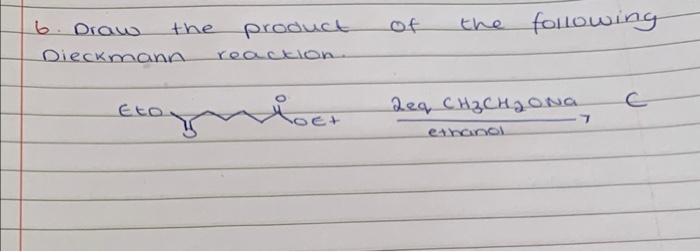 6. Draw the product of the following
Dieckmann reaction.
O
EtO OEt 2eq CH3CH2ONa C
O ethanol